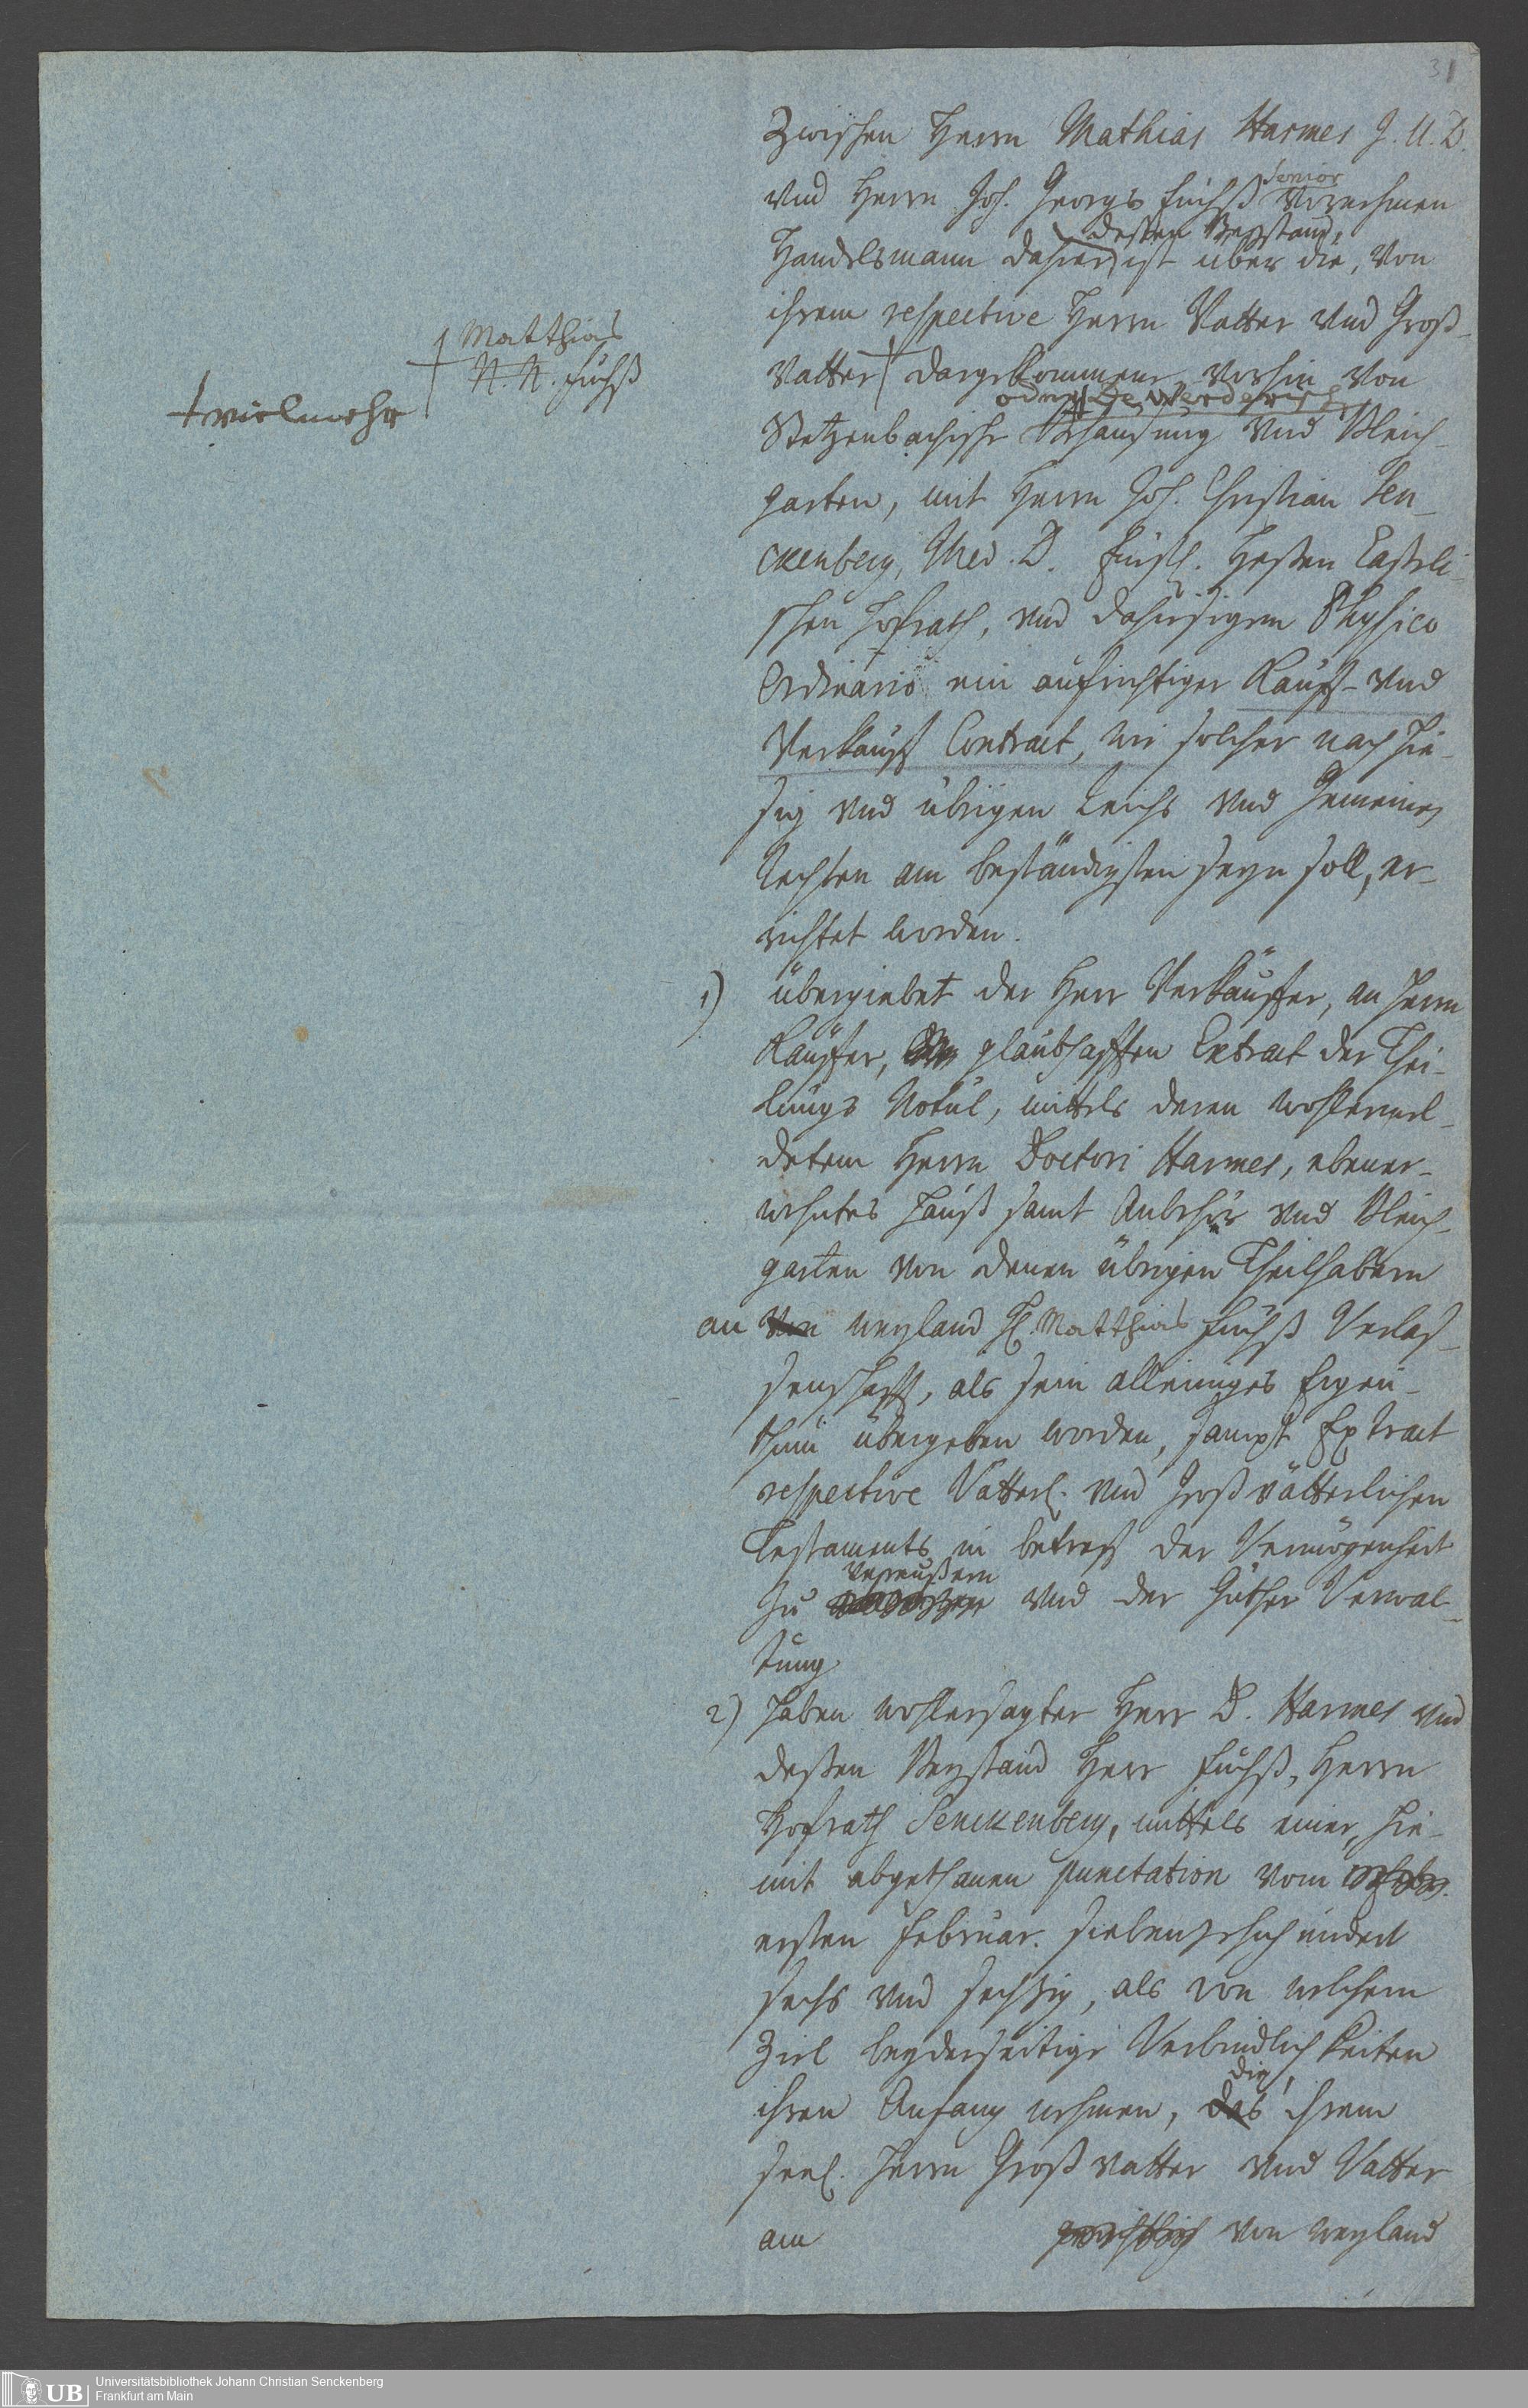 31
Zwischen Herrn Mathias Harmes J. U. D.
und Herrn Joh. Georg Fuchß Senior Vornehmen
Handelsmann dahier, deßen Beystand, ist über die, von
ihrem respective Herrn Vatter und Groß-
vatter dargekommene vorhin von
oder
Stetzenbachische Behausung und Bleich-
garten, mit Herrn Joh. Christian Sen-
ckenberg, Med. D. Fürstl. Heßen Casseli-
schen Hofrath, und dahiesigem Physico
Ordinario ein aufrichtiger Kauff- und
Verkauff Contract, wie solcher nach hie-
sig und übrigen Reichs und Gemeinen
Rechten am beständigsten seyn soll, er-
richtet worden.
† Matthias
N. N. Fuchß
† vielmehr
1) übergiebet der Herr Verkäuffer, an Herrn
Käuffer, glaubhafften Extract der Thei-
lungs Notul, mittels deren wohlermel-
detem Herrn Doctori Harmes, ebener-
wehntes Hauß samt Zubehör und Bleich-
garten von denen übrigen Theilhabern
an von weyland H. Matthias Fuchß Verlas-
senschafft, als sein alleiniges Eigen-
thum übergeben worden, sampt Extract
respective Vatterl. und Großvätterlichen
Testaments in betreff der Vermögenheit
zu veräußern und der Güther Verwal-
tung
2) haben wohlersagter Herr D. Harmes und
deßen Beystand Herr Fuchß, Herrn
Hofrath Senckenberg, mittels einer, hie-
mit abgethanen Punctation vom
ersten Februar. siebenzehnhundert
sechs und sechzig, als von welchem
Ziel beyderseitige Verbindlichkeiten
ihren Anfang nehmen, das die, ihrem
seel. Herrn Großvatter und Vatter
am gerichtlich von weyland
UB Universitätsbibliothek Johann Christian Senckenberg
Frankfurt am Main